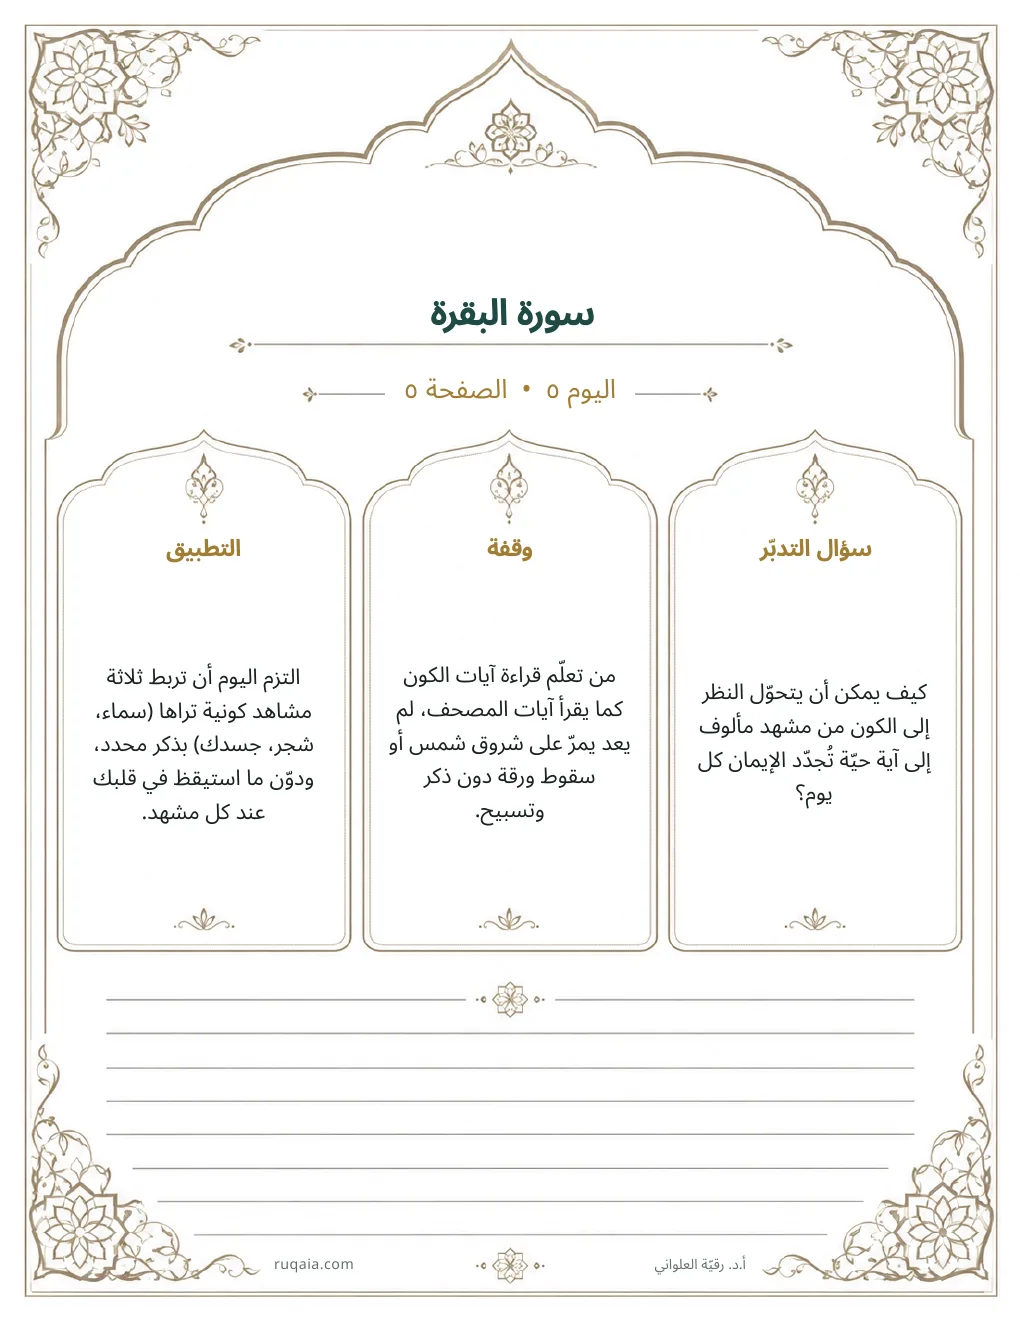 سورة البقرة
اليوم ٥ • الصفحة ٥
سؤال التدبّر
كيف يمكن أن يتحوّل النظر
إلى الكون من مشهد مألوف
إلى آية حيّة تُجدّد الإيمان كل
يوم؟
وقفة
من تعلّم قراءة آيات الكون
كما يقرأ آيات المصحف، لم
يعد يمرّ على شروق شمس أو
سقوط ورقة دون ذكر
وتسبيح.
التطبيق
التزم اليوم أن تربط ثلاثة
مشاهد كونية تراها (سماء،
شجر، جسدك) بذكر محدد،
ودوّن ما استيقظ في قلبك
عند كل مشهد.
أ.د. رقيّة العلواني
ruqaia.com